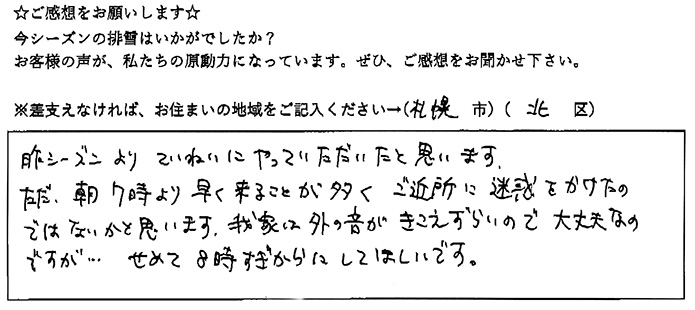 ☆ご感想をお願いします☆
今シーズンの排雪はいかがでしたか？
お客様の声が、私たちの原動力になっています。ぜひ、ご感想をお聞かせ下さい。
※差支えなければ、お住まいの地域をご記入ください→(札幌 市) ( 北 区)
昨シーズンより ていねいに やっていただいたと思います。
ただ、朝7時より早く来ることが多く ご近所に迷惑をかけたの
ではないかと思います。我家は外の音がきこえずらいので 大丈夫なの
ですが… せめて 8時すぎからに してほしいです。